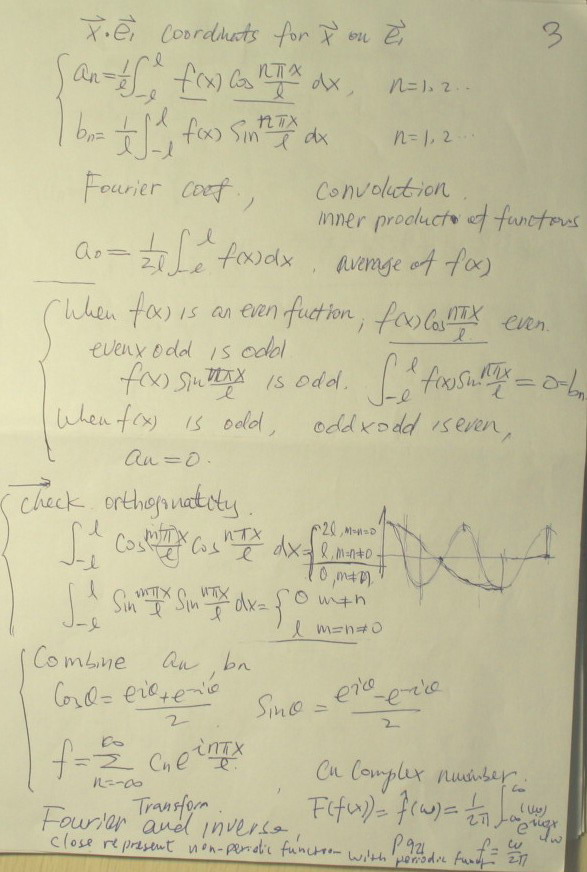 3
x⃗·e⃗₁ coordinats for x⃗ on e⃗₁
aₙ = 1/l ∫₋ₗˡ f(x) Cos nπx/l dx, n=1, 2 ..
bₙ = 1/l ∫₋ₗˡ f(x) Sin nπx/l dx n=1, 2 ...
Fourier coef., convolution.
inner product of functions
a₀ = 1/2l ∫₋ₗˡ f(x)dx, average of f(x)
When f(x) is an even fuction, f(x) Cos nπx/l even.
even x odd is odd
f(x) Sin nπx/l is odd. ∫₋ₗˡ f(x) Sin nπx/l = 0 = bₙ
When f(x) is odd, odd x odd is even,
aₙ = 0.
check orthogonality.
∫₋ₗˡ Cos mπx/l Cos nπx/l dx = { 2l, m=n=0
l, m=n≠0
0, m≠n
∫₋ₗˡ Sin mπx/l Sin nπx/l dx = { 0 m≠n
l m=n≠0
Combine aₙ, bₙ
Cosθ = (e^iθ + e^-iθ)/2 Sinθ = (e^iθ - e^-iθ)/2
f = Σ n=-∞ ∞ Cₙ e^(inπx/l)
, Cₙ complex number.
Transform F(f(x)) = f̂(ω) = 1/2π ∫₋∞^∞
Fourier and inverse
close represent non-periodic function with periodic func P921 f = ω/2π